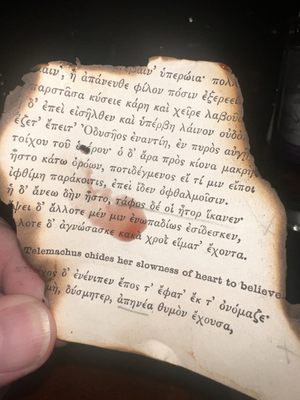 ὑπερώια· πολ
αιν', ἢ ἀπάνευθε φίλον πόσιν ἐξερεεί
παρστᾶσα κύσειε κάρη καὶ χεῖρε λαβοῦ
δ' ἐπεὶ εἰσῆλθεν καὶ ὑπέρβη λάινον οὐδό
ζετ' ἔπειτ' Ὀδυσῆος ἐναντίη, ἐν πυρὸς αὐγῇ
τοίχου τοῦ ρου· ὁ δ' ἄρα πρὸς κίονα μακρὴ
ἧστο κάτω ὁρόων, ποτιδέγμενος εἴ τί μιν εἴποι
φθίμη παράκοιτις, ἐπεὶ ἴδεν ὀφθαλμοῖσιν.
ἡ δ' ἄνεω δὴν ἧστο, τάφος δέ οἱ ἦτορ ἵκανεν·
ψει δ' ἄλλοτε μέν μιν ἐνωπαδίως ἐσίδεσκεν,
λοτε δ' ἀγνώσασκε κακὰ χροῒ εἵματ' ἔχοντα.
Telemachus chides her slowness of heart to believe
χος δ' ἐνένιπεν ἔπος τ' ἔφατ' ἔκ τ' ὀνόμαζε·
μή, δύσμητερ, ἀπηνέα θυμὸν ἔχουσα,